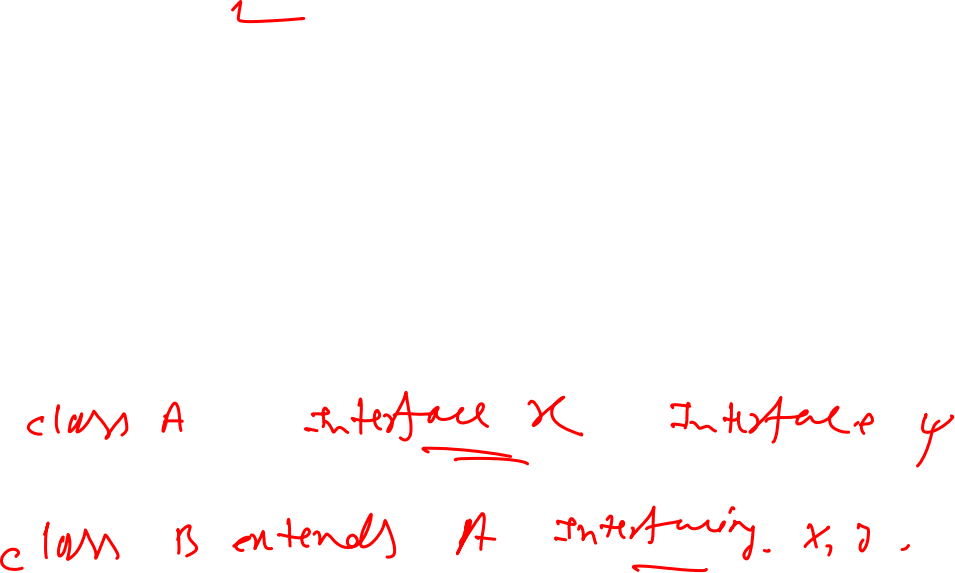 class A Interface x Interface y
class B extends A Interfacing. x, y.